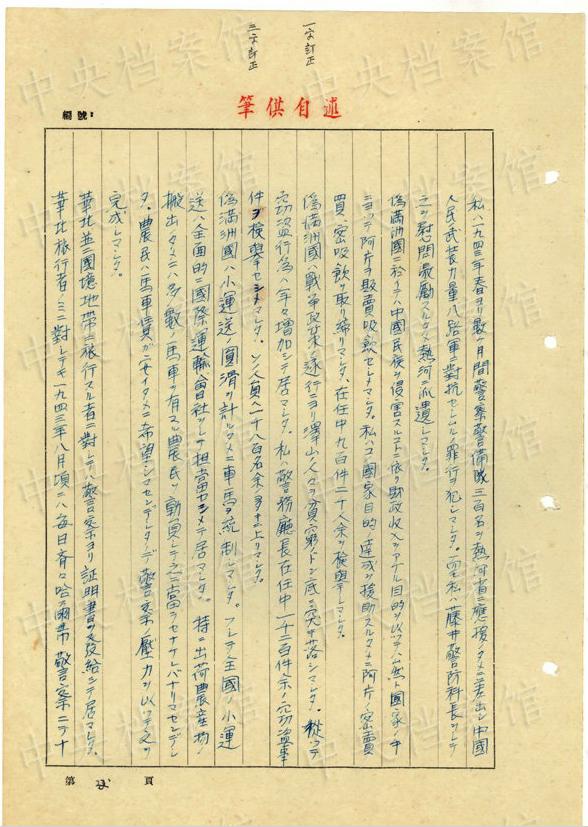 一字訂正
三字訂正
筆供自述
編號:
私ハ一九四三年春ヨリ数ヶ月間警察警備隊三百名ヲ熱河省ニ應援ノタメニ差出シ中國
人民武装力量八路軍ニ對抗セシムルノ罪行ヲ犯シマシタ。一至私ハ藤井警防科長ヲシテ
之ヲ慰問激励スルタメ熱河ニ派遣シマシタ。
偽満洲國ニ於イテハ中國民族ヲ侵害スルコトニ依リ財政収入ヲアゲル目的ヲ以ッテ公然ト國家ノ手
ニヨッテ阿片ヲ販賣吸飲セシメマシタ。私ハコノ國家目的ノ達成ヲ援助スルタメニ阿片ノ密賣
買、密吸飲ヲ取リ締リマシタ、在任中九百件二十人余ヲ検擧シマシタ。
偽満洲國ハ戦争政策ノ遂行ニヨリ澤山ノ人々ヲ貧窮ノドン底ニ突キ落シマシタ。從ッテ
窃盗行為ハ年々増加シテ居マシタ。私ハ警務廳長在任中一千二百件余ノ窃盗事
件ヲ検擧セシメマシタ。ソノ人員ハ一千八百名余ヲ上リマシタ。
偽満洲國ハ小運送ノ圓滑ヲ計ルタメニ車馬ヲ統制シマシタ。ソシテ全國ノ小運
送ハ全面的ニ國際運輸會社ヲシテ担當セシメテ居マシタ。特ニ出荷農産物ノ
搬出ノタメニハ多數ノ馬車ヲ有スル農民ヲ動員シテ之ニ當ラセナケレバナリマセンデシ
タ。農民ハ馬車賃ガ安イタメニ希望シマセンデシタノデ警察ノ壓力ヲ以ッテ之ヲ
完成シマシタ。
華北並ニ國境地帯ニ旅行スル者ニ對シテハ警察ヨリ証明書ヲ發給シテ居マシタ。
華北旅行者ノミニ對シテモ一九四三年八月頃ニハ毎日齊々哈爾市警察ニテ十
第 頁